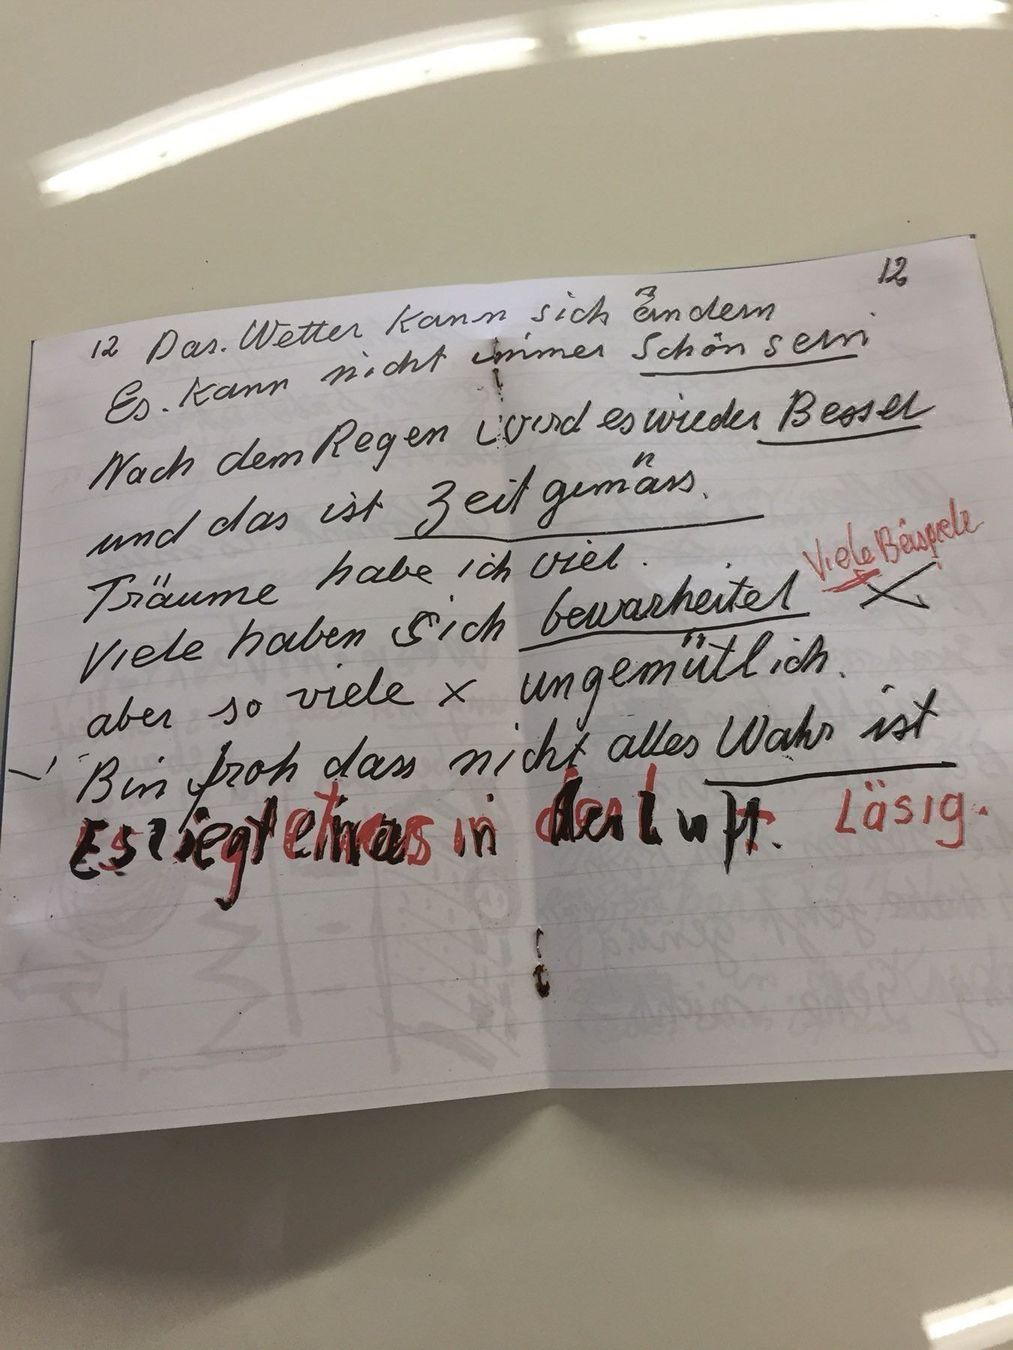 12
12 Das. Wetter kann sich ändern
Es. kann nicht immer Schön sein
Nach dem Regen wird es wieder Besser
und das ist Zeitgemäss.
Träume habe ich viel.
Viele Beispiele
Viele haben Sich bewarheitet X
aber so viele x ungemütlich.
Bin froh dass nicht alles Wahr ist
Es liegt etwas in der Luft. Läsig.